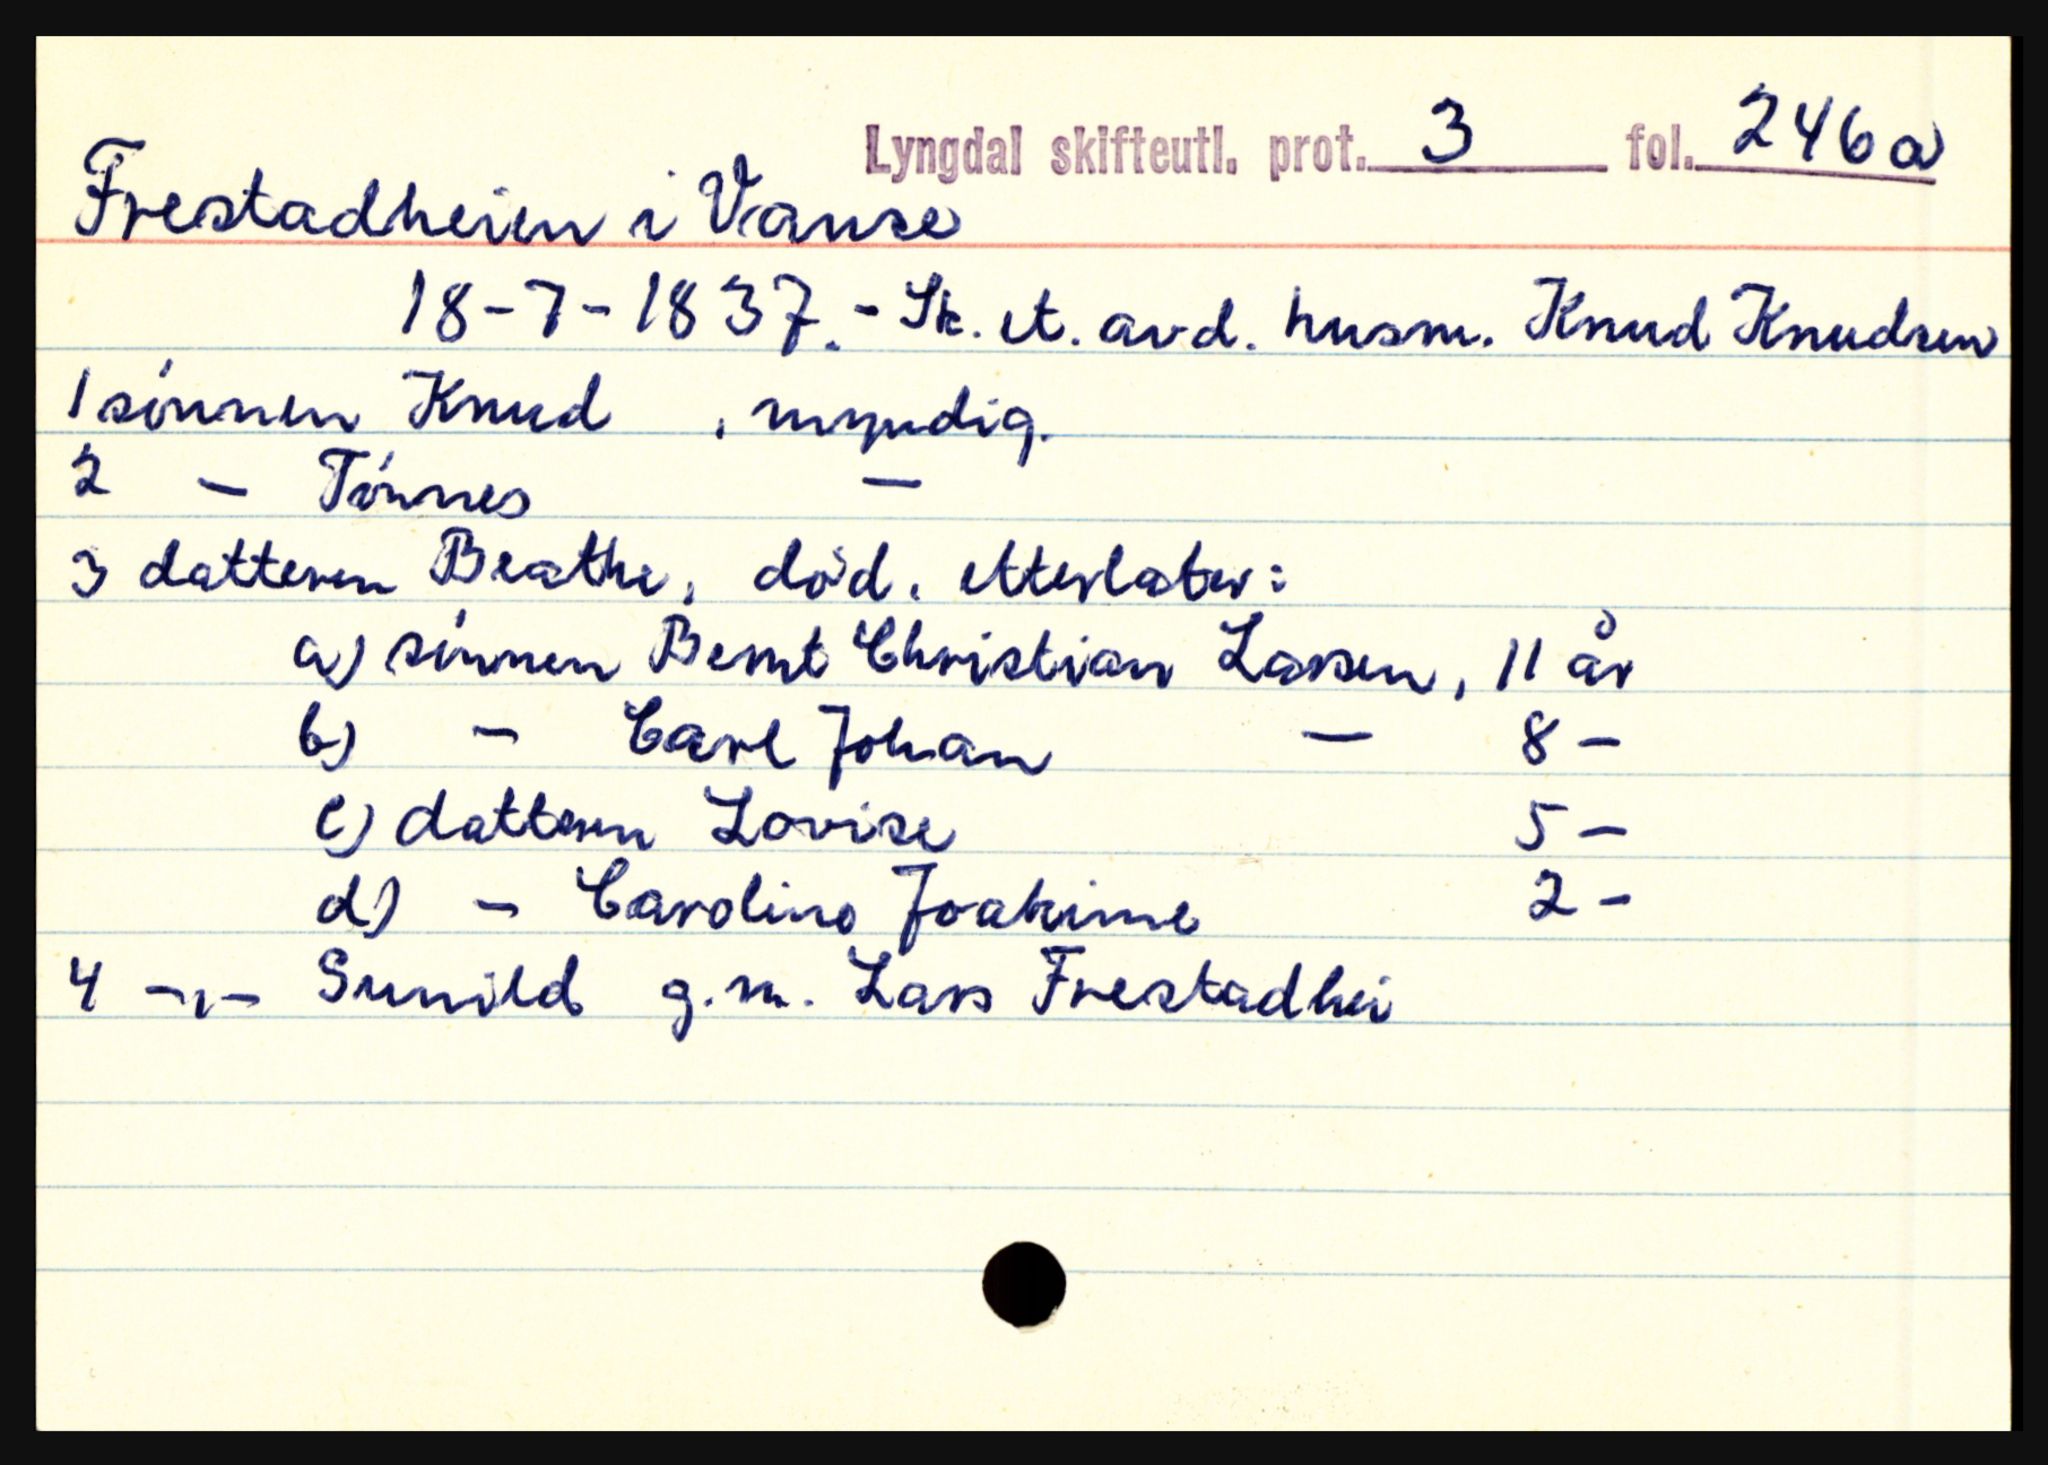 Lyngdal skifteutl. prot. 3 fol. 246a
Frestadheien i Vanse
18-7-1837. - Sk. et. avd. husm. Knud Knudsen
1 sónnen Knud , myndig.
2 - Tónnes -
3 datteren Beathe, død. etterlater:
a) sónnen Bernt Christian Larsen, 11 år
b) - Carl Johan - 8 -
c) datteren Lovise 5 -
d) - Caroline Joakime 2 -
4 -"- Sunild g.m. Lars Frestadhei